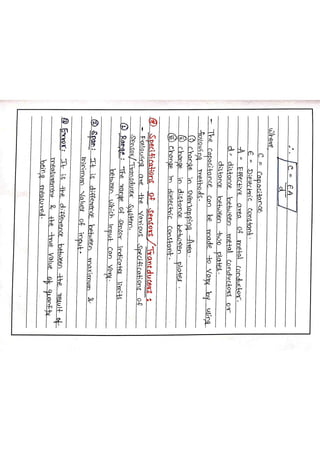 ∴ C = εA / d
where,
C = Capacitance
ε = Dielectric Constant
A = Effective area of metal conductor.
d = distance between metal conductors or
distance between two plates.
- The capacitance can be made to vary by using
following methods:
(i) Change in overlapping Area.
(ii) Change in distance between plates.
(iii) Change in dielectric Constant.
Specifications of Sensors / Transducers :
- Following are the various specifications of
Sensor/Transducer System.
① Range : The range of Sensor indicate limits
between which input can vary.
② Span : It is difference between maximum &
minimum values of input.
③ Error : It is the difference between the result of
measurement & the true value of quantity
being measured.